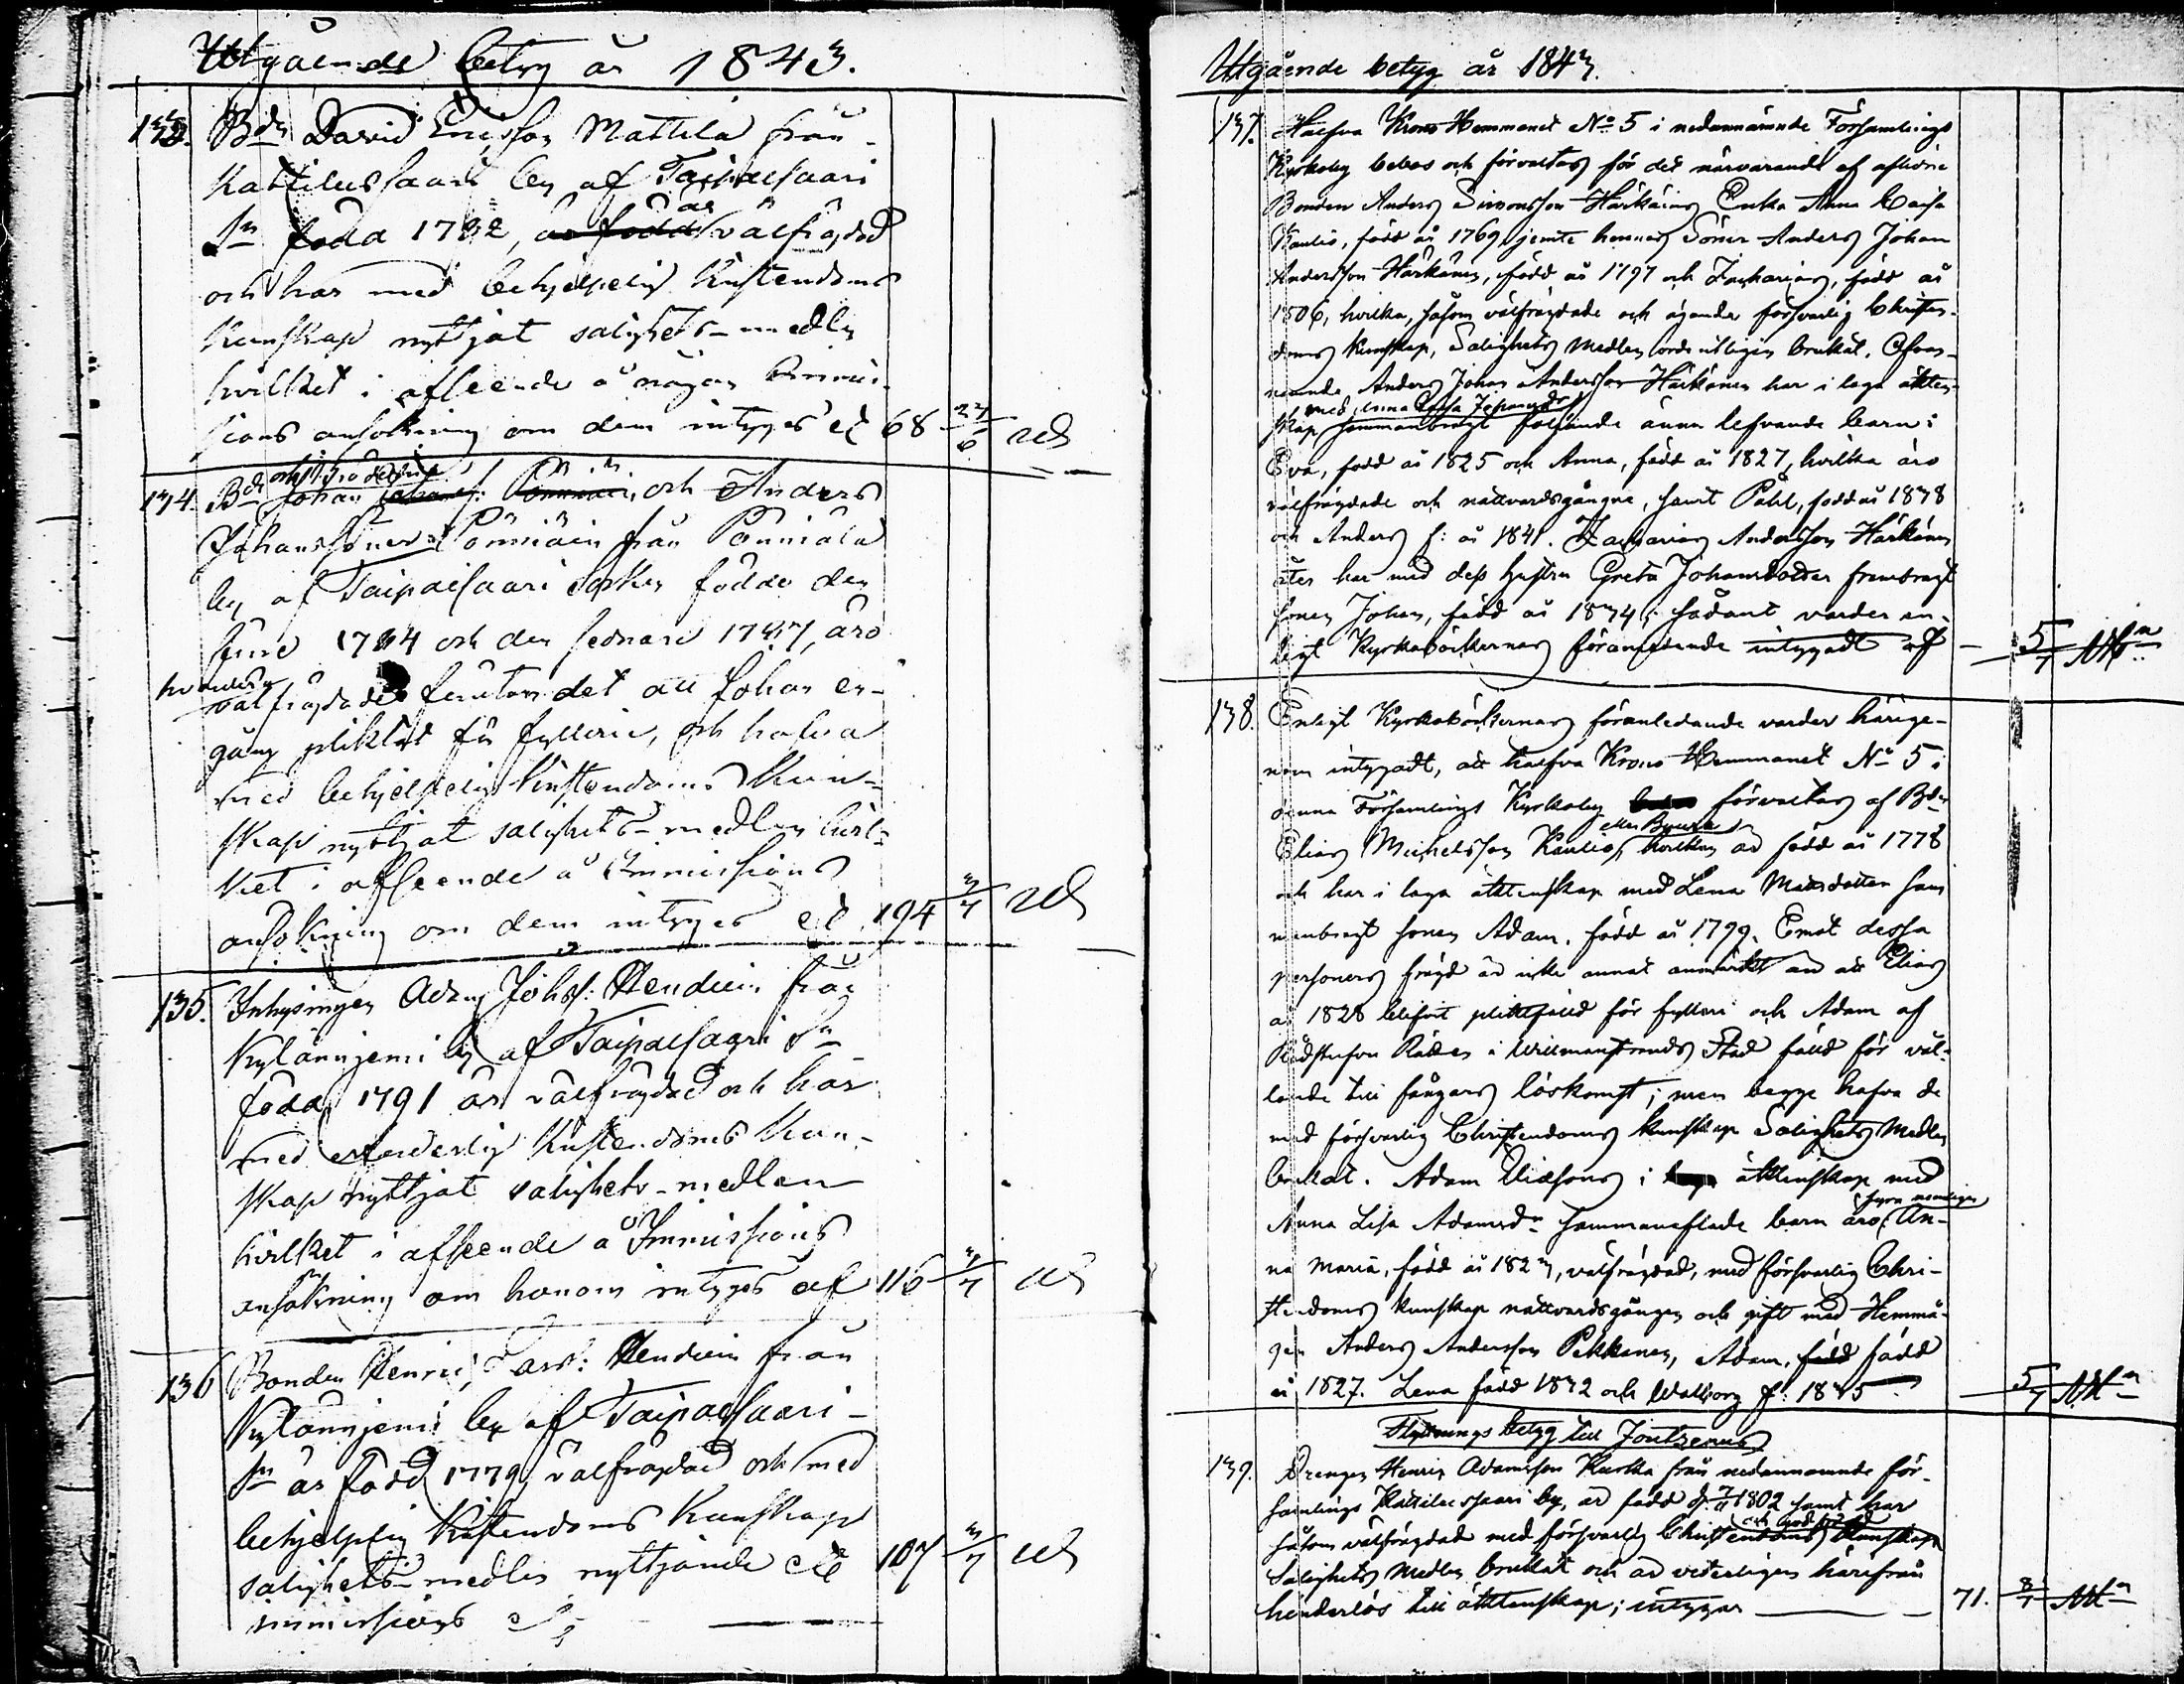 Utgående betyg år 1843.
133. Bdn David Ericsson Mattila från
Kattelussaari by af Taipalsaari
Sn född 1782, är född är välfrägdad
och har med behjelpelig Kristendoms
Kunskap nyttjat salighets-medlen
hvilket i afseende å någon Immis-
sions ansökning om dem intyges etc 68 27/6
134. Bdr Johan och Anders
Johanssöner Pönniäin från Pönniälä
by af Taipalsaari Socken födde den
förre 1784 och den sednare 1787, äro
välfrägdade förutan det att Johan en
gång pliktat för fylleri, och hafva
med behjelpelig Kristendoms Kun-
skap nyttjat salighets-medlen hvil-
ket i afseende å Immissions
ansökning om dem intyges etc 194 3/7
135. Inhysingen Adam Johss: Hendiein från
Kylänniemi by af Taipalsaari Sn
född 1791 är välfrägdad och har
med erforderlig Kristendoms Kun-
skap nyttjat salighets-medlen
hvilket i afseende å Immissions
ansökning om honom intyges af 116 3/7
136 Bonden Henric Larss: Hendiein från
Kylänniemi by af Taipalsaari
Sn är född 1779, välfrägdad och med
behjelplig Kristendoms Kunskap
salighets-medlen nyttjande etc 107 3/7
immissions
Utgående betyg år 1843.
137. Halfva Krono Hemmanet No 5 i nedannämnde Församlings
Kyrkoby bebos och förvaltas för det närvarande af aflidne
Bonden Anders Simonsson Härkäins Enka Anna Caisa
Kaulio, född år 1769 jemte hennes Söner Anders Johan
Andersson Härkänen, född år 1797 och Zacharias, född år
1806, hvilka, såsom välfrägdade och ägande försvarlig Christen-
doms kunskap, Salighets Medlen ordentligen brukat. Ofvan-
nämnde Anders Johan Andersson Härkänen har i laga äkten-
skap med Anna sammanbragt följande ännu lefvande barn:
Eva, född år 1825 och Anna, född år 1827, hvilka äro
välfrägdade och nattvardsgångna, samt Påhl, född år 1838
och Anders f: år 1841. Zacharias Andersson Härkänen
åter har med dess hustru Greta Johansdotter frambragt
sonen Johan, född år 1834; sådant varder en-
ligt Kyrkoböckernas föranledande intygadt af 5/7
138. Enligt Kyrkoböckernas föranledande varder härige-
nom intygadt, att halfva Krono Hemmanet No 5 i
denna Församlings Kyrkoby förvaltas af Bdn
Elias Michelsson Kaulio, hvilken är född år 1778
och har i laga äktenskap med Lena Matsdotter sam
manbragt sonen Adam, född år 1799. Emot dessa
personers frägd är icke annat anmärkt än att Elias
år 1828 blifvit pliktfälld för fylleri och Adam af
Rådstufvu Rätten i Willmanstrands Stad fälld för vål-
lande till fångars löskomst; men begge hafva de
med försvarlig Christendoms kunskap Salighets Medlen
brukat. Adam Eliassons i äktenskap med
Anna Lisa Adamsdr sammanaflade barn äro, An-
na Maria, född år 1823, välfrägdad, med försvarlig Chri-
stendoms kunskap nattvardsgången och gift med Hemmä-
gen Anders Andersson Pekkanen, Adam, född född
år 1827. Lena född 1832 och Walborg f: 1835 5/7
Flyttnings betyg till Joutzenus
139. Drengen Henric Adamsson Kurkka från nedannämnde för-
samlings Kattelussaari by, är född d. 7/11 1802 samt har
såsom välfrägdad med försvarlig Christendoms kunskap
Salighets Medlen brukat och är veterligen härifrån
hinderlös till äktenskap; intygar 71. 8/7